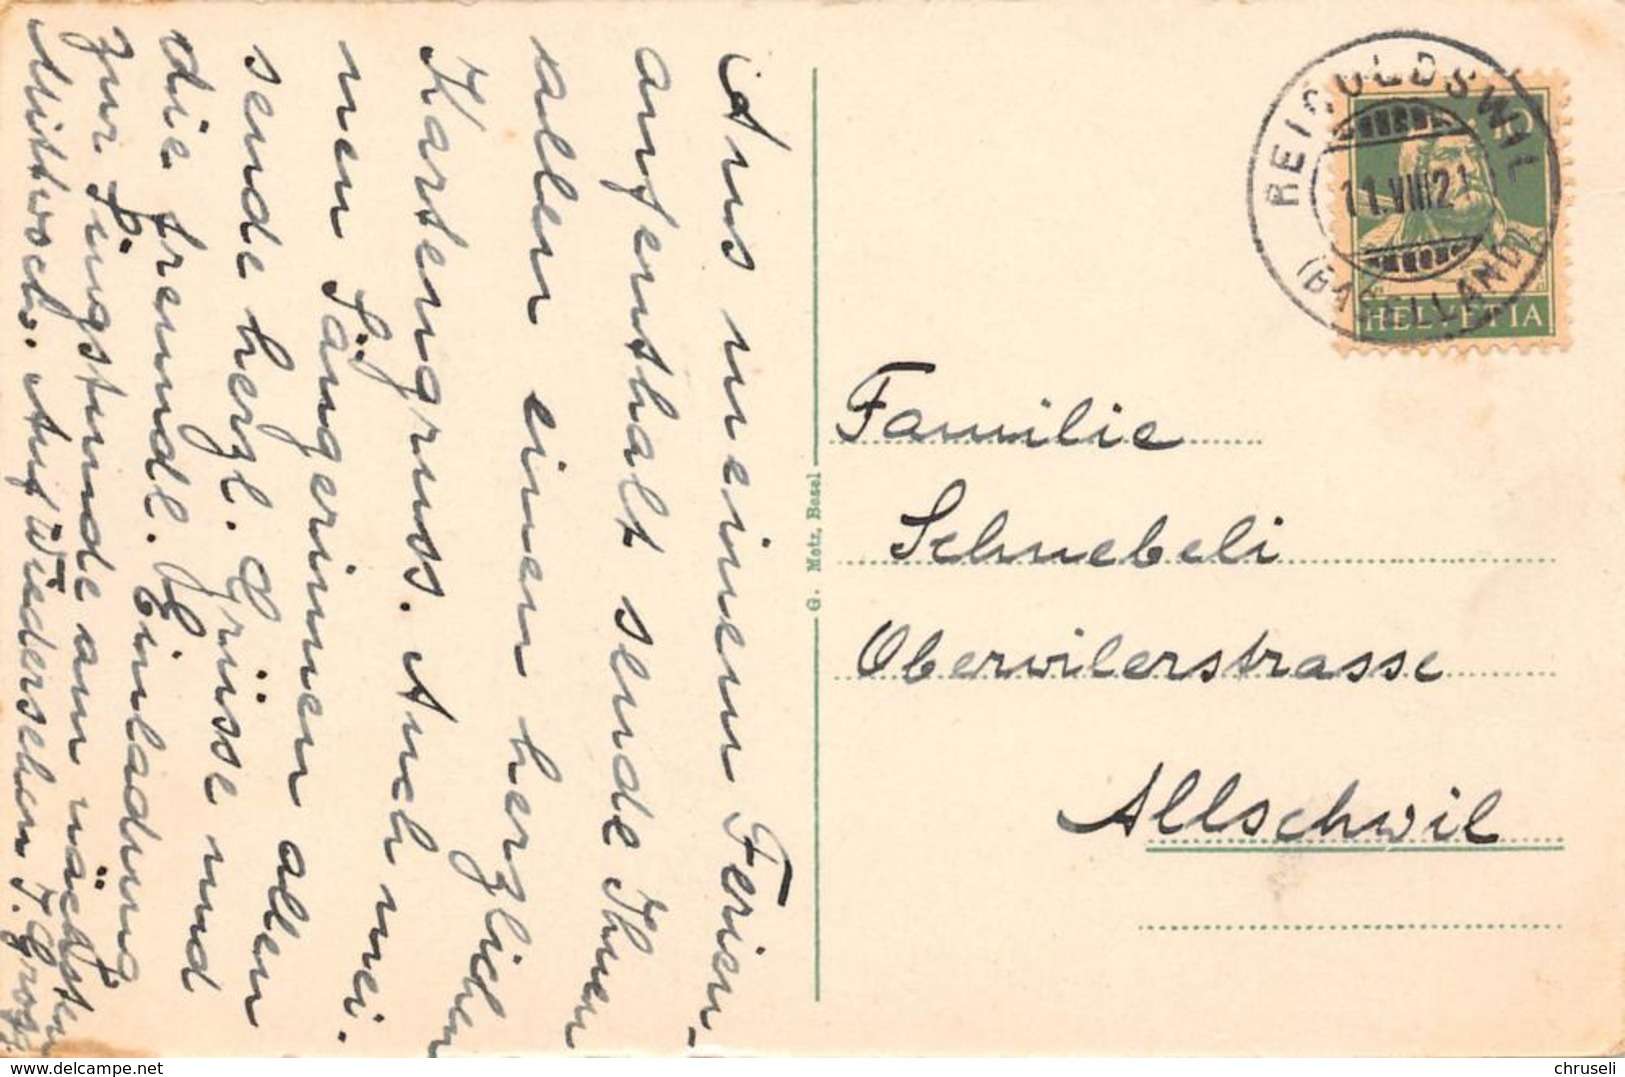 Aus meinem Ferien-
aufenthalt sende Ihnen
allen einen herzlichen
Kartengruss. Auch mei-
nen Sängerinnen allen
sende herzl. Grüsse und
die freundl. Einladung
zur Singstunde am nächsten
Mittwoch. Auf Wiedersehen J.
G. Metz, Basel
REIGOLDSWIL
11.VIII 21
(BASELLAND)
10
HELVETIA
Familie
Schnebeli
Oberwilerstrasse
Allschwil
delcampe.net
chruseli